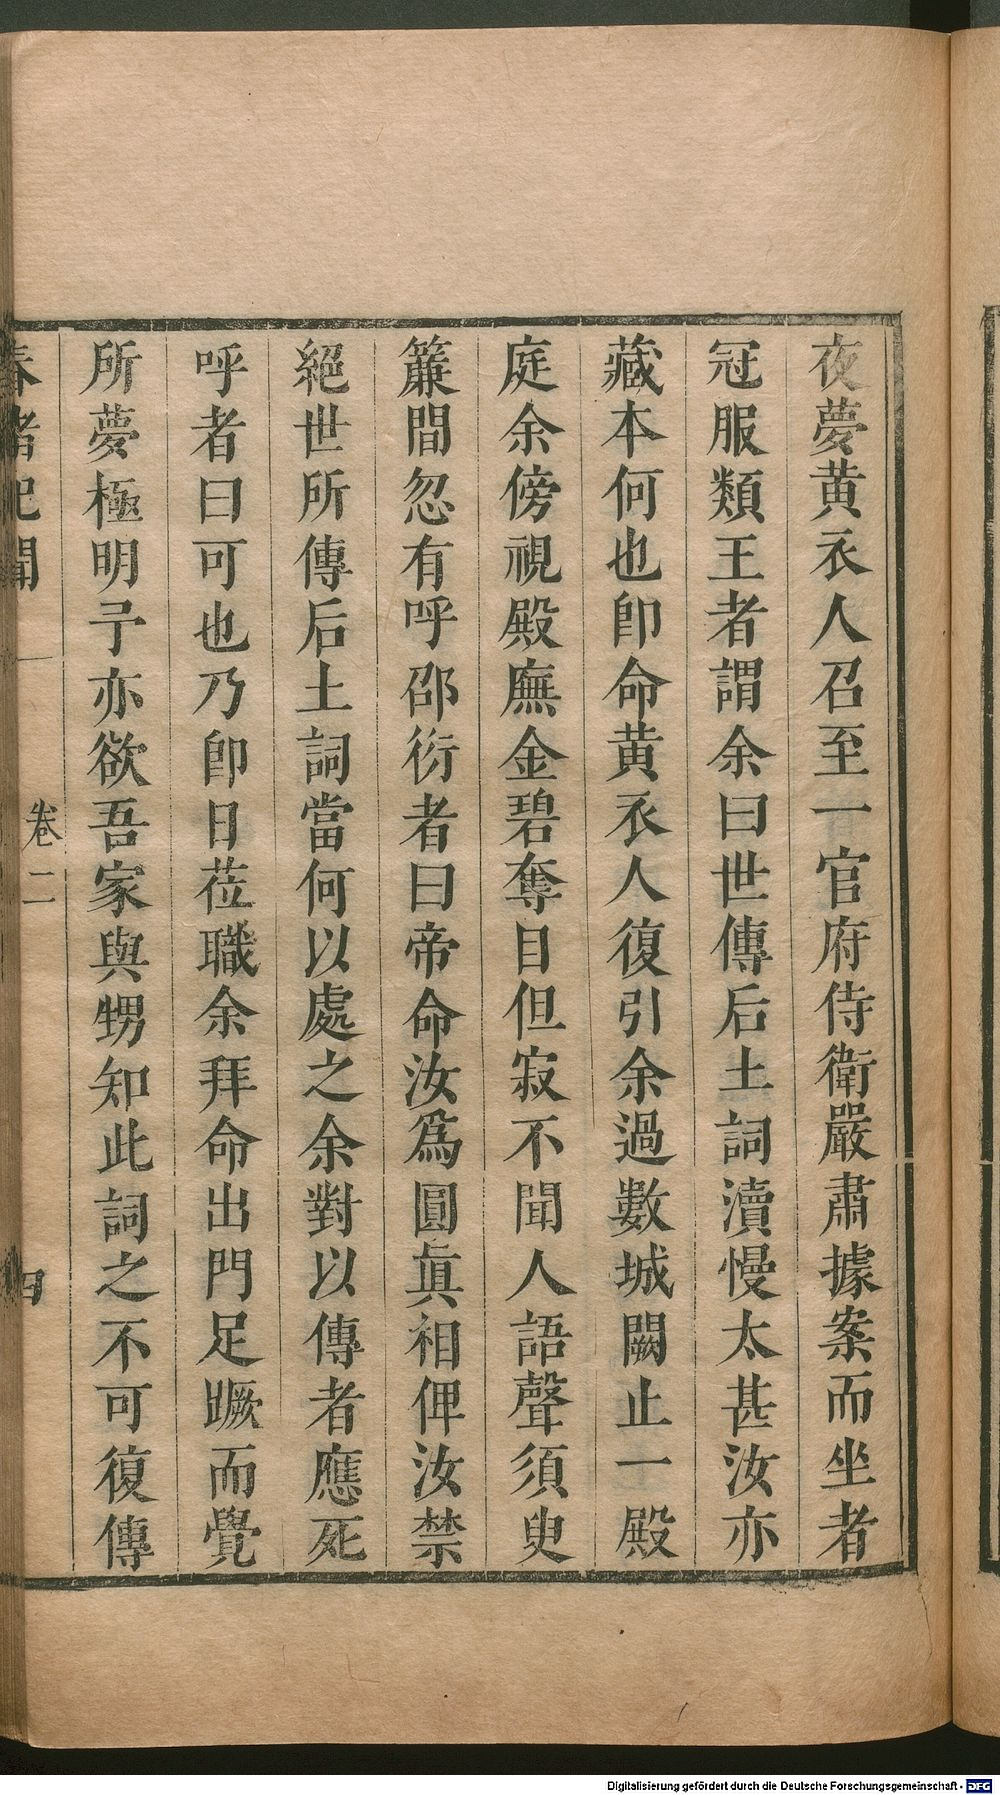 夜夢黄衣人召至一官府侍衛嚴肅據案而坐者
冠服類王者謂余曰世傳后土詞瀆慢太甚汝亦
藏本何也卽命黄衣人復引余過數城闕止一殿
庭余傍視殿廡金碧奪目但寂不聞人語聲須臾
簾間忽有呼邵衍者曰帝命汝爲圓眞相俾汝禁
絕世所傳后土詞當何以處之余對以傳者應死
呼者曰可也乃卽日莅職余拜命出門足蹶而覺
所夢極明予亦欲吾家與甥知此詞之不可復傳
春渚紀聞 卷二 四
Digitalisierung gefördert durch die Deutsche Forschungsgemeinschaft - DFG